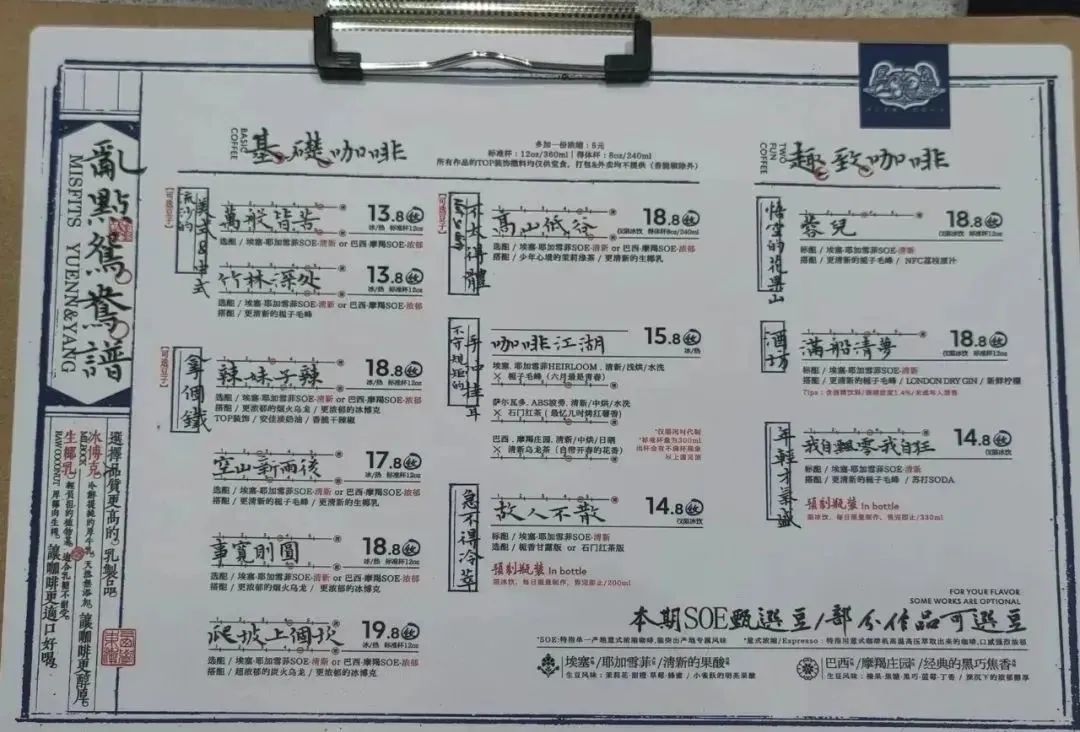 亂點鴛鴦譜
MISFITS YUENN&YANG
選擇品質更高的乳製品
冰博克
MILK ROCK
讓咖啡更醇厚
生椰乳
RAW COCONUT
讓咖啡更適口好喝
BASIC COFFEE
基礎咖啡
多加一份浓缩:5元
标准杯:12oz/360ml | 得体杯:8oz/240ml
所有作品的TOP装饰撒料均仅供堂食,打包&外卖均不提供(香脆椒除外)
【可选豆子】
美式&中式
萬般皆苦 13.8
冰/热 标准杯12oz
选配 / 埃塞·耶加雪菲SOE·清新 or 巴西·摩羯SOE·浓郁
竹林深处 13.8
冰/热 标准杯12oz
选配 / 埃塞·耶加雪菲SOE·清新 or 巴西·摩羯SOE·浓郁
搭配 / 更清新的栀子毛峰
【可选豆子】
拿個鐵
辣妹子辣 18.8
冰/热 标准杯12oz
选配 / 埃塞·耶加雪菲SOE·清新 or 巴西·摩羯SOE·浓郁
搭配 / 更浓郁的烟火乌龙 / 更浓郁的冰博克
TOP装饰 / 安佳淡奶油 / 香脆干辣椒
空山新雨後 17.8
冰/热 标准杯12oz
选配 / 埃塞·耶加雪菲SOE·清新 or 巴西·摩羯SOE·浓郁
搭配 / 更清新的栀子毛峰 / 更清新的生椰乳
事寬則圓 18.8
冰/热 标准杯12oz
选配 / 埃塞·耶加雪菲SOE·清新 or 巴西·摩羯SOE·浓郁
搭配 / 更浓郁的烟火乌龙 / 更浓郁的冰博克
爬坡上個坎 19.8
冰/热 标准杯12oz
选配 / 埃塞·耶加雪菲SOE·清新 or 巴西·摩羯SOE·浓郁
搭配 / 超浓郁的炭火乌龙 / 更浓郁的冰博克
【可选豆子】
不放得體
高山低谷 18.8
仅限冰饮 得体杯8oz/240ml
选配 / 埃塞·耶加雪菲SOE·清新 or 巴西·摩羯SOE·浓郁
搭配 / 少年心境的茉莉绿茶 / 更清新的生椰乳
不守規矩的
手中挂耳
咖啡江湖 15.8
冰/热
埃塞.耶加雪菲HEIRLOOM.清新/浅烘/水洗
× 栀子毛峰(六月最是青春)
萨尔瓦多.ABS波旁.清新/中烘/水洗
× 石门红茶(最忆儿时烤红薯香)
巴西.摩羯庄园.清新/中烘/日晒
× 清新乌龙茶(自带开春的花香)
*仅限闲时代制
*标准杯量为300ml
急不得冷萃
故人不散 14.8
仅限冰饮
标配 / 埃塞·耶加雪菲SOE·清新
选配 / 栀香甘露版 or 石门红茶版
預制瓶裝 In bottle
限冰饮,每日限量制作,售完即止/200ml
TWO FUN COFFEE
趣致咖啡
悟空的花果山
蓉兒 18.8
仅限冰饮 标准杯12oz
标配 / 埃塞·耶加雪菲SOE·清新
搭配 / 更清新的栀子毛峰 / NFC荔枝原汁
酒坊
滿船清夢 18.8
仅限冰饮 标准杯12oz
标配 / 埃塞·耶加雪菲SOE·清新
搭配 / 更清新的栀子毛峰 / LONDON DRY GIN / 新鲜柠檬
Tips:含酒精饮料/酒精浓度1.4%/未成年人禁售
年輕才氣盛
我自飄零我自狂 14.8
仅限冰饮
标配 / 埃塞·耶加雪菲SOE·清新
搭配 / 更清新的栀子毛峰 / 苏打SODA
預制瓶裝 In bottle
限冰饮,每日限量制作,售完即止/330ml
FOR YOUR FLAVOR
SOME WORKS ARE OPTIONAL
本期SOE甄選豆/部分作品可選豆
*SOE:特指单一产地意式浓缩咖啡,强突出产地专属风味 *意式浓缩/Espresso:特指用意式咖啡机高温高压萃取出来的咖啡,口感强烈浓郁
埃塞/耶加雪菲/清新的果酸
生豆风味:茉莉花·甜橙·草莓·蜂蜜 / 小雀跃的明亮果酸
巴西/摩羯庄园/经典的黑巧焦香
生豆风味:榛果·焦糖·黑巧·蓝莓·丁香 / 深沉下的浓郁醇厚